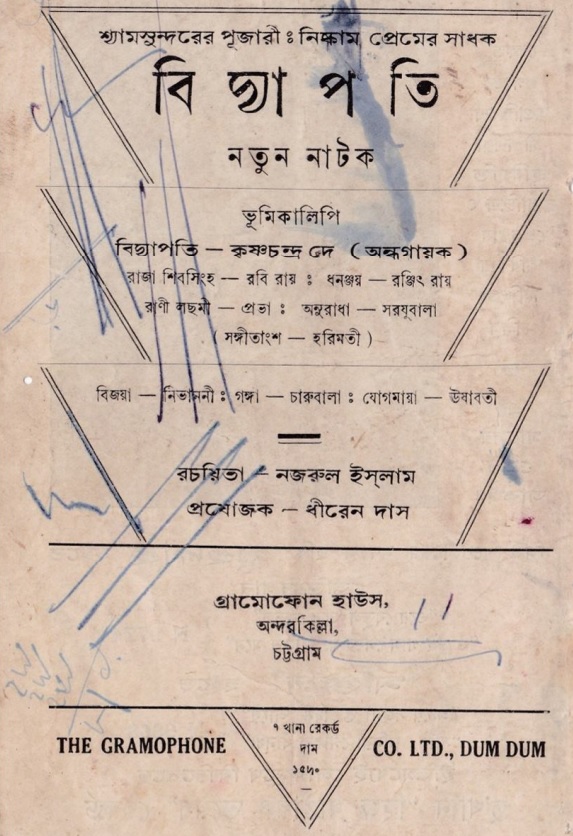 শ্যামসুন্দরের পূজারী : নিষ্কাম প্রেমের সাধক
বিদ্যাপতি
নতুন নাটক
ভূমিকালিপি
বিদ্যাপতি — কৃষ্ণচন্দ্র দে ( অন্ধগায়ক )
রাজা শিবসিংহ — রবি রায় : ধনঞ্জয় — রঞ্জিৎ রায়
রাণী লছমী — প্রভা : অনুরাধা — সরযূবালা
( সঙ্গীতাংশ — হরিমতী )
বিজয়া — নিভাননী : গঙ্গা — চারুবালা : যোগমায়া — ঊষাবতী
রচয়িতা — নজরুল ইস্‌লাম
প্রযোজক — ধীরেন দাস
গ্রামোফোন হাউস,
অন্দরকিল্লা,
চট্টগ্রাম
৭ খানা রেকর্ড
THE GRAMOPHONE
দাম
CO. LTD., DUM DUM